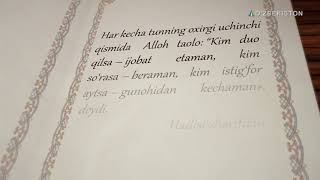 O'ZBEKISTON
Har kecha tunning oxirgi uchinchi
qismida Alloh taolo: "Kim duo
qilsa – ijobat etaman, kim
so'rasa – beraman, kim istig'for
aytsa – gunohidan kechaman",
deydi.
Hadisi sharifdan